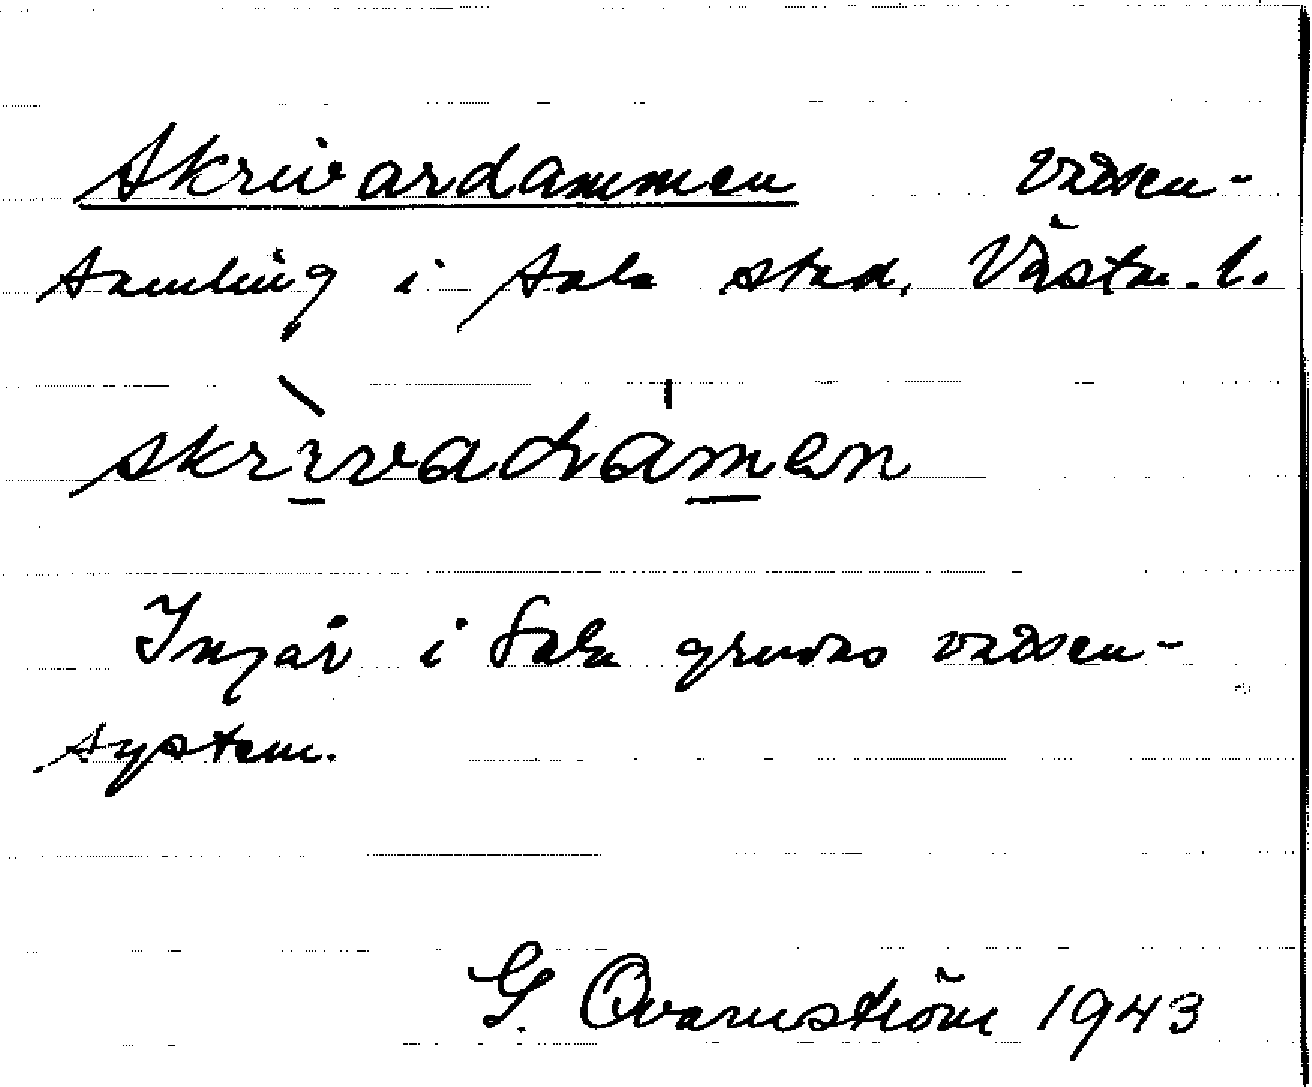 Skrivardammen vatten-
samling i Sala stad, Västm. l.
skrìvadàmen
Ingår i Sala gruvas vatten-
system.
G. Qvarnström 1943